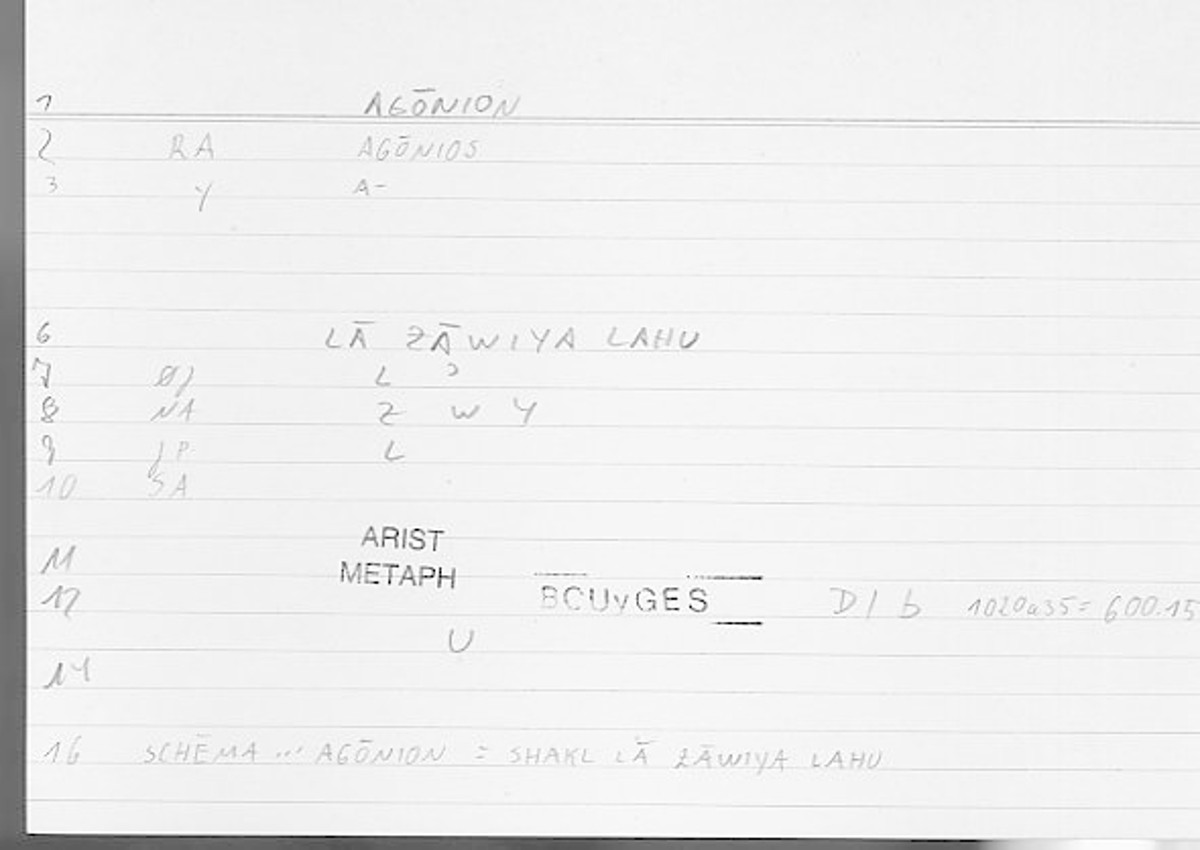 1 AGŌNION
2 RA AGŌNIOS
3 Y A-
6 LĀ ZĀWIYA LAHU
7 L ʾ
8 NA Z W Y
9 JP L
10 SA
ARIST
11 METAPH
12 BCUvGES D1 b 1020a35= 600.15
U
14
16 SCHĒMA ... AGŌNION = SHAKL LĀ ZĀWIYA LAHU